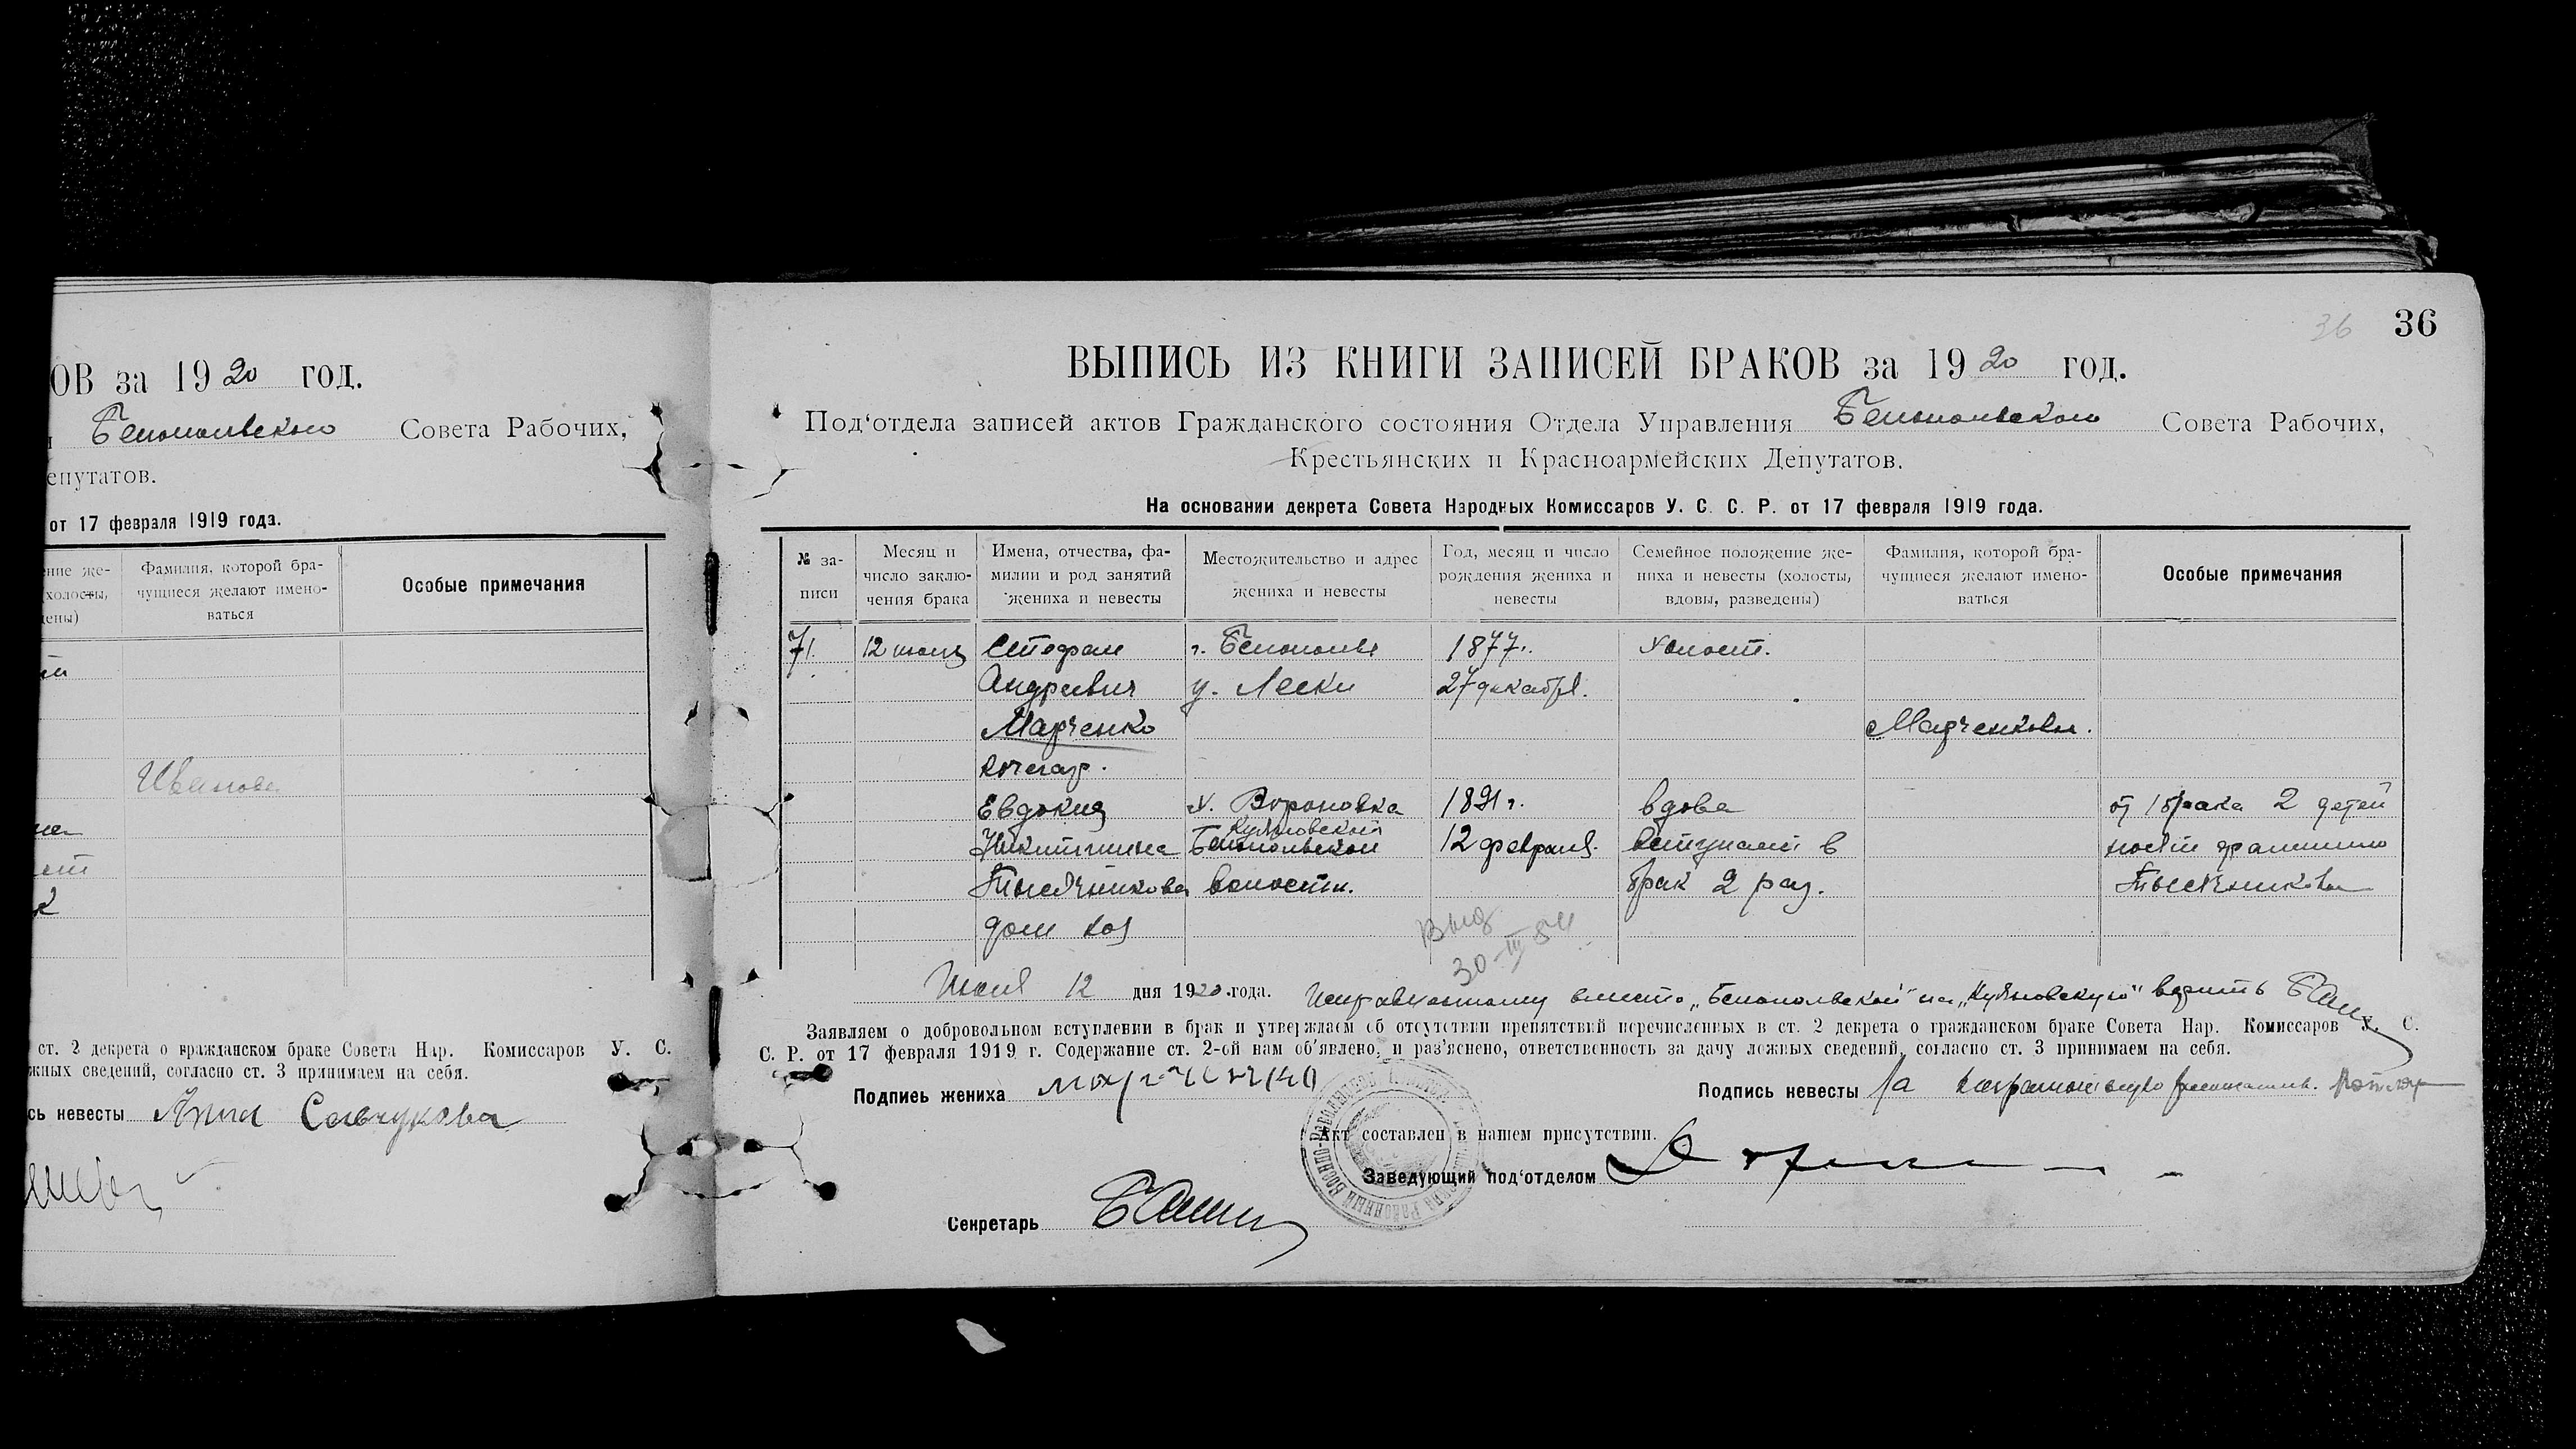 ОВ за 1920 год.
Белопольского Совета Рабочих,
епутатов.
от 17 февраля 1919 года.
ние же-
холосты,
ены)
Фамилия, которой бра-
чущиеся желают имено-
ваться
Особые примечания
Иванова
ст. 2 декрета о гражданском браке Совета Нар. Комиссаров У. С.
жных сведений, согласно ст. 3 принимаем на себя.
сь невесты Анна
36
36
ВЫПИСЬ ИЗ КНИГИ ЗАПИСЕЙ БРАКОВ за 1920 год.
Под‘отдела записей актов Гражданского состояния Отдела Управления Белопольского Совета Рабочих,
Крестьянских и Красноармейских Депутатов.
На основании декрета Совета Народных Комиссаров У. С. С. Р. от 17 февраля 1919 года.
№ за-
писи
Месяц и
число заклю-
чения брака
Имена, отчества, фа-
милии и род занятий
жениха и невесты
Местожительство и адрес
жениха и невесты
Год, месяц и число
рождения жениха и
невесты
Семейное положение же-
ниха и невесты (холосты,
вдовы, разведены)
Фамилия, которой бра-
чущиеся желают имено-
ваться
Особые примечания
71. 12 июня Стефан г. Белополье 1877г. холост.
Андреевич у. Лески 27 декабря.
Марченко Марченковы.
кочегар.
Евдокия х. Вороновка 1891 г. вдова от 1 брака 2 детей
Куяновской
Никитишна Белопольской 12 февраля. вступает в носят фамилию
Тысячникова волости. брак 2 раз. Тысячниковы
дом хоз
Выд
30-III-54
Июня 12 дня 1920 года. Исправленному вместо „Белопольской" на „Куяновскую" верить
Заявляем о добровольном вступлении в брак и утверждаем об отсутствии препятствий перечисленных в ст. 2 декрета о гражданском браке Совета Нар. Комиссаров У. С.
С. Р. от 17 февраля 1919 г. Содержание ст. 2-ой нам об‘явлено, и раз‘яснено, ответственность за дачу ложных сведений, согласно ст. 3 принимаем на себя.
Подпись жениха Марченко
Подпись невесты За неграмотную
Акт составлен в нашем присутствии.
Заведующий под‘отделом
Секретарь